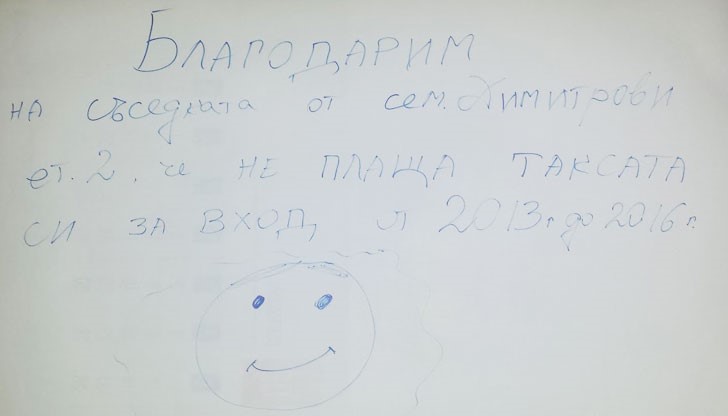 БЛАГОДАРИМ
НА съседката от сем. Димитрови
ет. 2, че НЕ ПЛАЩА ТАКСАТА
СИ ЗА ВХОД, от 2013г до 2016 г.